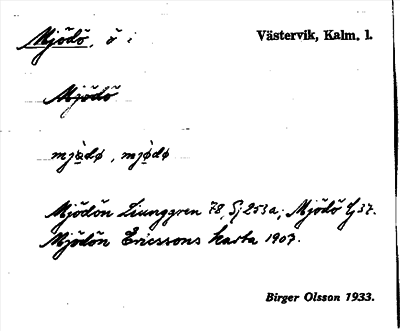 Mjödö, ö i
Västervik, Kalm. l.
Mjödö
mjödø, mjòdø
Mjödön Liunggren 78, Sj 253a; Mjödö Ej 37.
Mjödön Ericssons karta 1907.
Birger Olsson 1933.